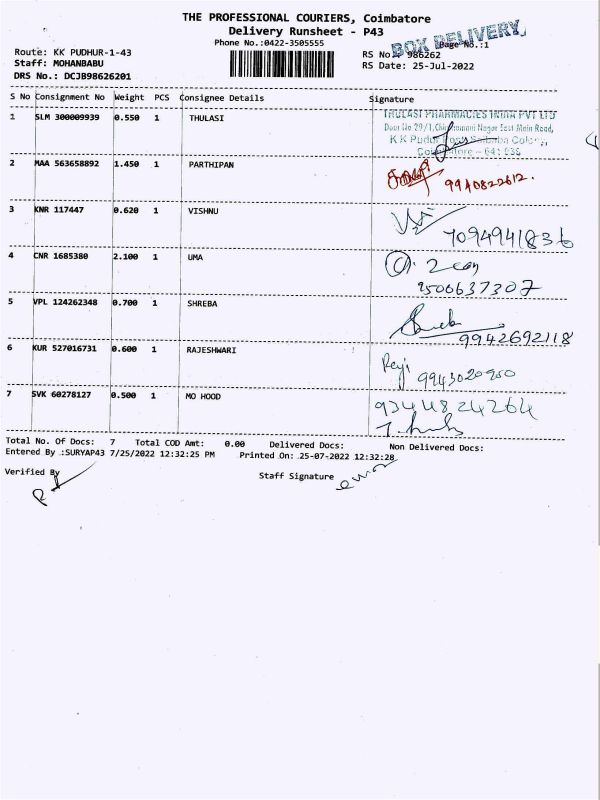 THE PROFESSIONAL COURIERS, Coimbatore
Delivery Runsheet - P43
Phone No.:0422-3505555
BOX DELIVERY
Page No.:1
Route: KK PUDHUR-1-43
Staff: MOHANBABU
DRS No.: DCJB98626201
RS No.: 986262
RS Date: 25-Jul-2022
S No Consignment No Weight PCS Consignee Details Signature
1 SLM 300009939 0.550 1 THULASI
THULASI PHARMACIES INDIA PVT LTD
Door No 29/1, Nagar East Main Road,
K K Pudur Post, Saibaba Colony,
Coimbatore - 641 038
2 MAA 563658892 1.450 1 PARTHIPAN
9940822612.
3 KNR 117447 0.620 1 VISHNU
7094941836
4 CNR 1685380 2.100 1 UMA
9500637307
5 VPL 124262348 0.700 1 SHREBA
9942692118
6 KUR 527016731 0.600 1 RAJESHWARI
Raji 9943020950
7 SVK 60278127 0.500 1 MO HOOD
9344824264
Total No. Of Docs: 7 Total COD Amt: 0.00 Delivered Docs: Non Delivered Docs:
Entered By .:SURYAP43 7/25/2022 12:32:25 PM Printed On: 25-07-2022 12:32:28
Verified By
Staff Signature